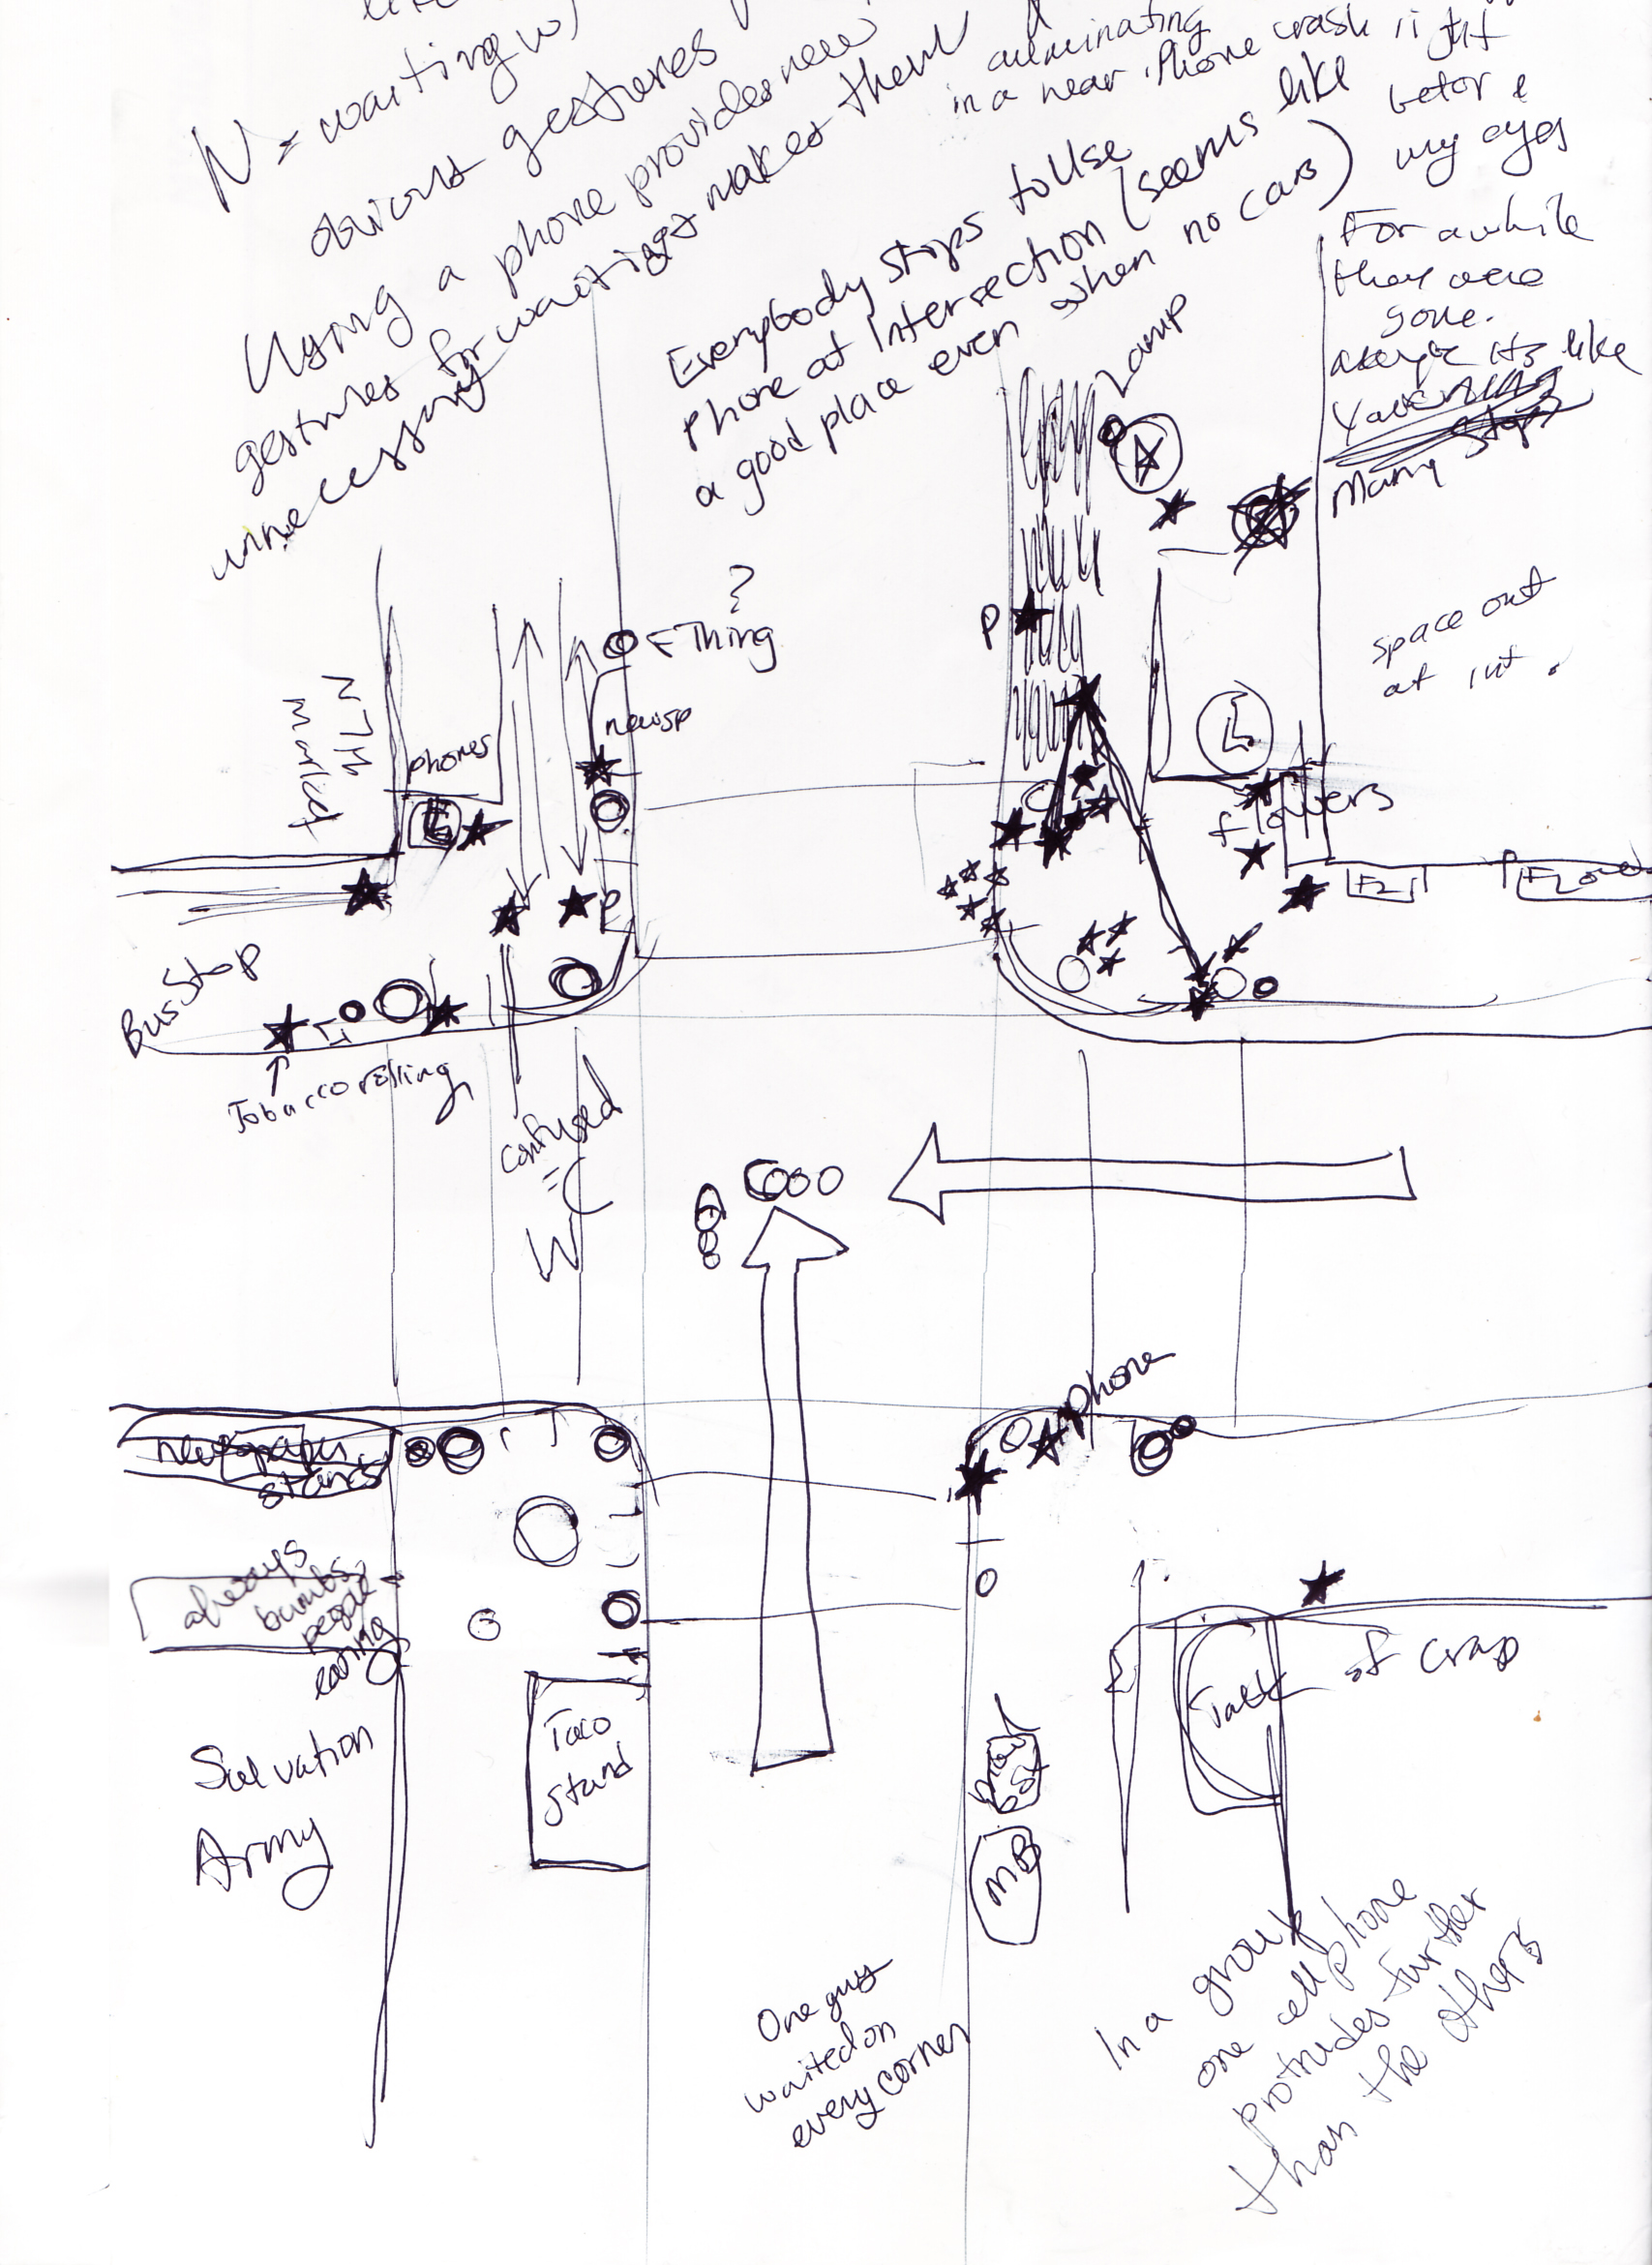 N = waiting w/
obvious gestures
Using a phone provides new
gestures for waiting & makes them
unnecessary
culminating
in a near iPhone crash right
before
my eyes
Everybody stops to use
phone at Intersection (seems like
a good place even when no cars)
For awhile
they were
gone.
its like
Many
space out
at int.
Lamp
P
?
← Thing
newsp
phones
N 7th
Market
flowers
P
Bus Stop
Tobacco rolling
confused
phone
newspaper
stands
always
bumbs,
people
eating
Salvation
Army
Taco
Stand
MB
Table of Crap
One guy
waited on
every corner
In a group
one cell phone
protrudes further
than the others